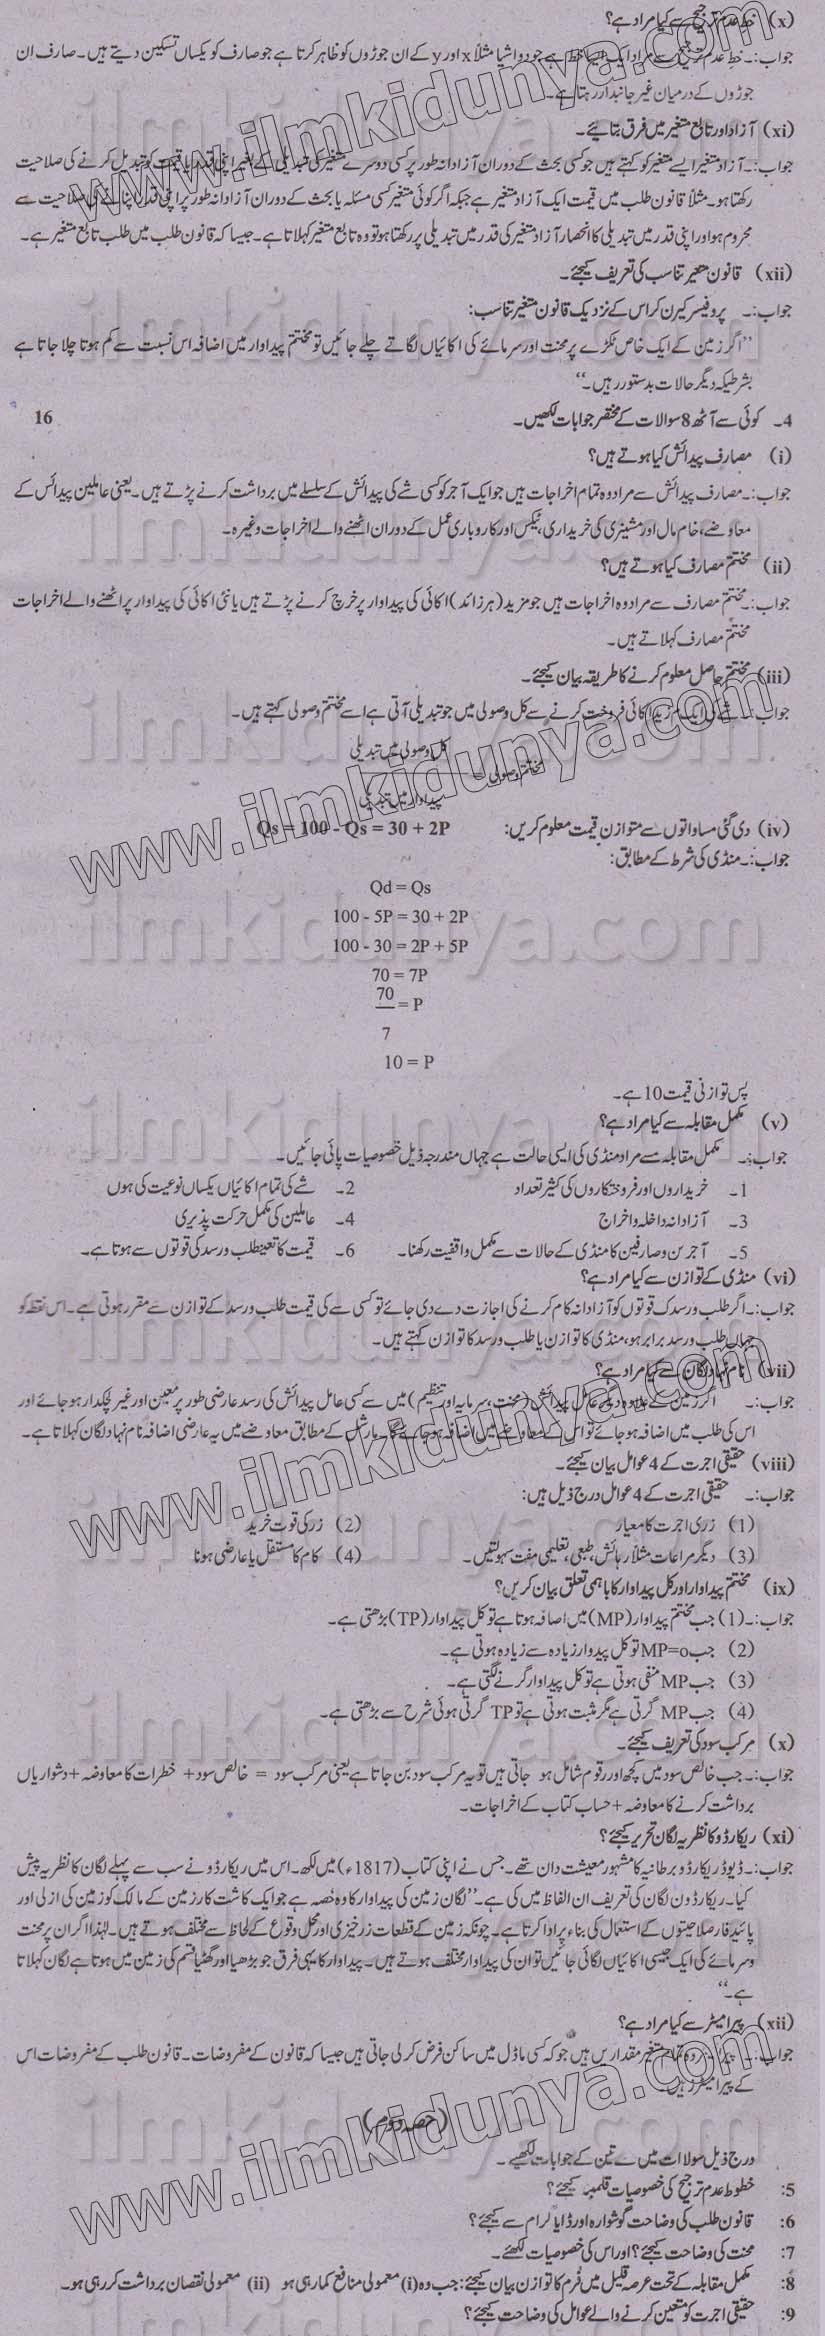 (x) خط عدم ترجیح سے کیا مراد ہے؟
جواب:۔ خط عدم ترجیح سے مراد ایک ایسا خط ہے جو دو اشیا مثلاً x اور y کے ان جوڑوں کو ظاہر کرتا ہے جو صارف کو یکساں تسکین دیتے ہیں۔ صارف ان
جوڑوں کے درمیان غیر جانبدار رہتا ہے۔
(xi) آزاد اور تابع متغیر میں فرق بتائیے۔
جواب:۔ آزاد متغیر ایسے متغیر کو کہتے ہیں جو کسی بحث کے دوران آزادانہ طور پر کسی دوسرے متغیر کی تبدیلی کے بغیر اپنی قدر یا قیمت کو تبدیل کرنے کی صلاحیت
رکھتا ہو۔ مثلاً قانون طلب میں قیمت ایک آزاد متغیر ہے جبکہ اگر کوئی متغیر کسی مسئلہ یا بحث کے دوران آزادانہ طور پر اپنی قدر اپنانے کی صلاحیت سے
محروم ہو اور اپنی قدر میں تبدیلی کا انحصار آزاد متغیر کی قدر میں تبدیلی پر رکھتا ہو تو وہ تابع متغیر کہلاتا ہے۔ جیسا کہ قانون طلب میں طلب تابع متغیر ہے۔
(xii) قانون متغیر تناسب کی تعریف کیجئے۔
جواب:۔ پروفیسر کیرن کراس کے نزدیک قانون متغیر تناسب:
’’اگر زمین کے ایک خاص ٹکڑے پر محنت اور سرمائے کی اکائیاں لگاتے چلے جائیں تو مختتم پیداوار میں اضافہ اس نسبت سے کم ہوتا چلا جاتا ہے
بشرطیکہ دیگر حالات بدستور رہیں۔‘‘
4۔ کوئی سے آٹھ 8 سوالات کے مختصر جوابات لکھیں۔ 16
(i) مصارف پیدائش کیا ہوتے ہیں؟
جواب:۔ مصارف پیدائش سے مراد وہ تمام اخراجات ہیں جو ایک آجر کو کسی شے کی پیدائش کے سلسلے میں برداشت کرنے پڑتے ہیں۔ یعنی عاملین پیدائس کے
معاوضے، خام مال اور مشینری کی خریداری، ٹیکس اور کاروباری عمل کے دوران اٹھنے والے اخراجات وغیرہ۔
(ii) مختتم مصارف کیا ہوتے ہیں؟
جواب:۔ مختتم مصارف سے مراد وہ اخراجات ہیں جو مزید (ہر زائد) اکائی کی پیداوار پر خرچ کرنے پڑتے ہیں یا نئی اکائی کی پیداوار پر اٹھنے والے اخراجات
مختتم مصارف کہلاتے ہیں۔
(iii) مختتم حاصل معلوم کرنے کا طریقہ بیان کیجئے۔
جواب:۔ شے کی ایک مزید اکائی فروخت کرنے سے کل وصولی میں جو تبدیلی آتی ہے اسے مختتم وصولی کہتے ہیں۔
کل وصولی میں تبدیلی
مختتم وصولی =
پیداوار میں تبدیلی
(iv) دی گئی مساواتوں سے متوازن قیمت معلوم کریں: Qs = 100 - Qs = 30 + 2P
جواب:۔ منڈی کی شرط کے مطابق:
Qd = Qs
100 - 5P = 30 + 2P
100 - 30 = 2P + 5P
70 = 7P
70
= P
7
10 = P
پس توازنی قیمت 10 ہے۔
(v) مکمل مقابلہ سے کیا مراد ہے؟
جواب:۔ مکمل مقابلہ سے مراد منڈی کی ایسی حالت ہے جہاں مندرجہ ذیل خصوصیات پائی جائیں۔
1۔ خریداروں اور فروختکاروں کی کثیر تعداد 2۔ شے کی تمام اکائیاں یکساں نوعیت کی ہوں
3۔ آزادانہ داخلہ و اخراج 4۔ عاملین کی مکمل حرکت پذیری
5۔ آجرین و صارفین کا منڈی کے حالات سے مکمل واقفیت رکھنا۔ 6۔ قیمت کا تعین طلب و رسد کی قوتوں سے ہوتا ہے۔
(vi) منڈی کے توازن سے کیا مراد ہے؟
جواب:۔ اگر طلب و رسد ک قوتوں کو آزادانہ کام کرنے کی اجازت دے دی جائے تو کسی سے کی قیمت طلب و رسد کے توازن سے مقرر ہوتی ہے۔ اس نقطہ کو
جہاں طلب و رسد برابر ہو، منڈی کا توازن یا طلب و رسد کا توازن کہتے ہیں۔
(vii) نام نہاد لگان سے کیا مراد ہے؟
جواب:۔ اگر زمین کے علاوہ دیگر عامل پیدائش (محنت، سرمایہ اور تنظیم) میں سے کسی عامل پیدائش کی رسد عارضی طور پر معین اور غیر لچکدار ہو جائے اور
اس کی طلب میں اضافہ ہو جائے تو اس کے معاوضے میں اضافہ ہو جائے گا۔ مارشل کے مطابق معاوضے میں یہ عارضی اضافہ نام نہاد لگان کہلاتا ہے۔
(viii) حقیقی اجرت کے 4 عوامل بیان کیجئے۔
جواب:۔ حقیقی اجرت کے 4 عوامل درج ذیل ہیں:
(1) زری اجرت کا معیار (2) زر کی قوت خرید
(3) دیگر مراعات مثلاً رہائش، طبعی، تعلیمی مفت سہولتیں۔ (4) کام کا مستقل یا عارضی ہونا
(ix) مختتم پیداوار اور کل پیداوار کا باہمی تعلق بیان کریں؟
جواب:۔ (1) جب مختتم پیداوار (MP) میں اضافہ ہوتا ہے تو کل پیداوار (TP) بڑھتی ہے۔
(2) جب MP=o تو کل پیدوار زیادہ سے زیادہ ہوتی ہے۔
(3) جب MP منفی ہوتی ہے تو کل پیداوار گرنے لگتی ہے۔
(4) جب MP گرتی ہے مگر مثبت ہوتی ہے تو TP گرتی ہوئی شرح سے بڑھتی ہے۔
(x) مرکب سود کی تعریف کیجئے۔
جواب:۔ جب خالص سود میں کچھ اور رقوم شامل ہو جاتی ہیں تو یہ مرکب سود بن جاتا ہے یعنی مرکب سود = خالص سود + خطرات کا معاوضہ + دشواریاں
برداشت کرنے کا معاوضہ + حساب کتاب کے اخراجات۔
(xi) ریکارڈو کا نظریہ لگان تحریر کیجئے؟
جواب:۔ ڈیوڈ ریکارڈو برطانیہ کا مشہور معیشت دان تھے۔ جس نے اپنی کتاب (1817ء) میں لکھ۔ اس میں ریکارڈو نے سب سے پہلے لگان کا نظریہ پیش
کیا۔ ریکارڈون لگان کی تعریف ان الفاظ میں کی ہے۔ ’’لگان زمین کی پیداوار کا وہ حصہ ہے جو ایک کاشت کار زمین کے مالک کو زمین کی ازلی اور
پائیدار صلاحیتوں کے استعمال کی بناء پر ادا کرتا ہے۔ چونکہ زمین کے قطعات زرخیزی اور محل وقوع کے لحاظ سے مختلف ہوتے ہیں۔ لہٰذا اگر ان پر محنت
و سرمائے کی ایک جیسی اکائیاں لگائی جائیں تو ان کی پیداوار مختلف ہوتے ہیں۔ پیداوار کا یہی فرق جو بڑھیا اور گھٹیا قسم کی زمین میں ہوتا ہے لگان کہلاتا
ہے۔‘‘
(xii) پیرا میٹر سے کیا مراد ہے؟
جواب:۔ وہ تمام متغیر مقداریں ہیں جو کہ کسی ماڈل میں ساکن فرض کر لی جاتی ہیں جیسا کہ قانون کے مفروضات۔ قانون طلب کے مفروضات اس
کے پیرا میٹرز ہیں۔
(حصہ دوم)
درج ذیل سولات میں سے تین کے جوابات لکھیے۔
5: خطوط عدم ترجیح کی خصوصیات قلمبند کیجئے؟
6: قانون طلب کی وضاحت گوشوارہ اور ڈایاگرام سے کیجئے؟
7: محنت کی وضاحت کیجئے؟ اور اس کی خصوصیات لکھئے۔
8: مکمل مقابلہ کے تحت عرصہ قلیل میں فرم کا توازن بیان کیجئے: جب وہ (i) معمولی منافع کما رہی ہو (ii) معمولی نقصان برداشت کر رہی ہو۔
9: حقیقی اجرت کو متعین کرنے والے عوامل کی وضاحت کیجئے؟
www.ilmkidunya.com